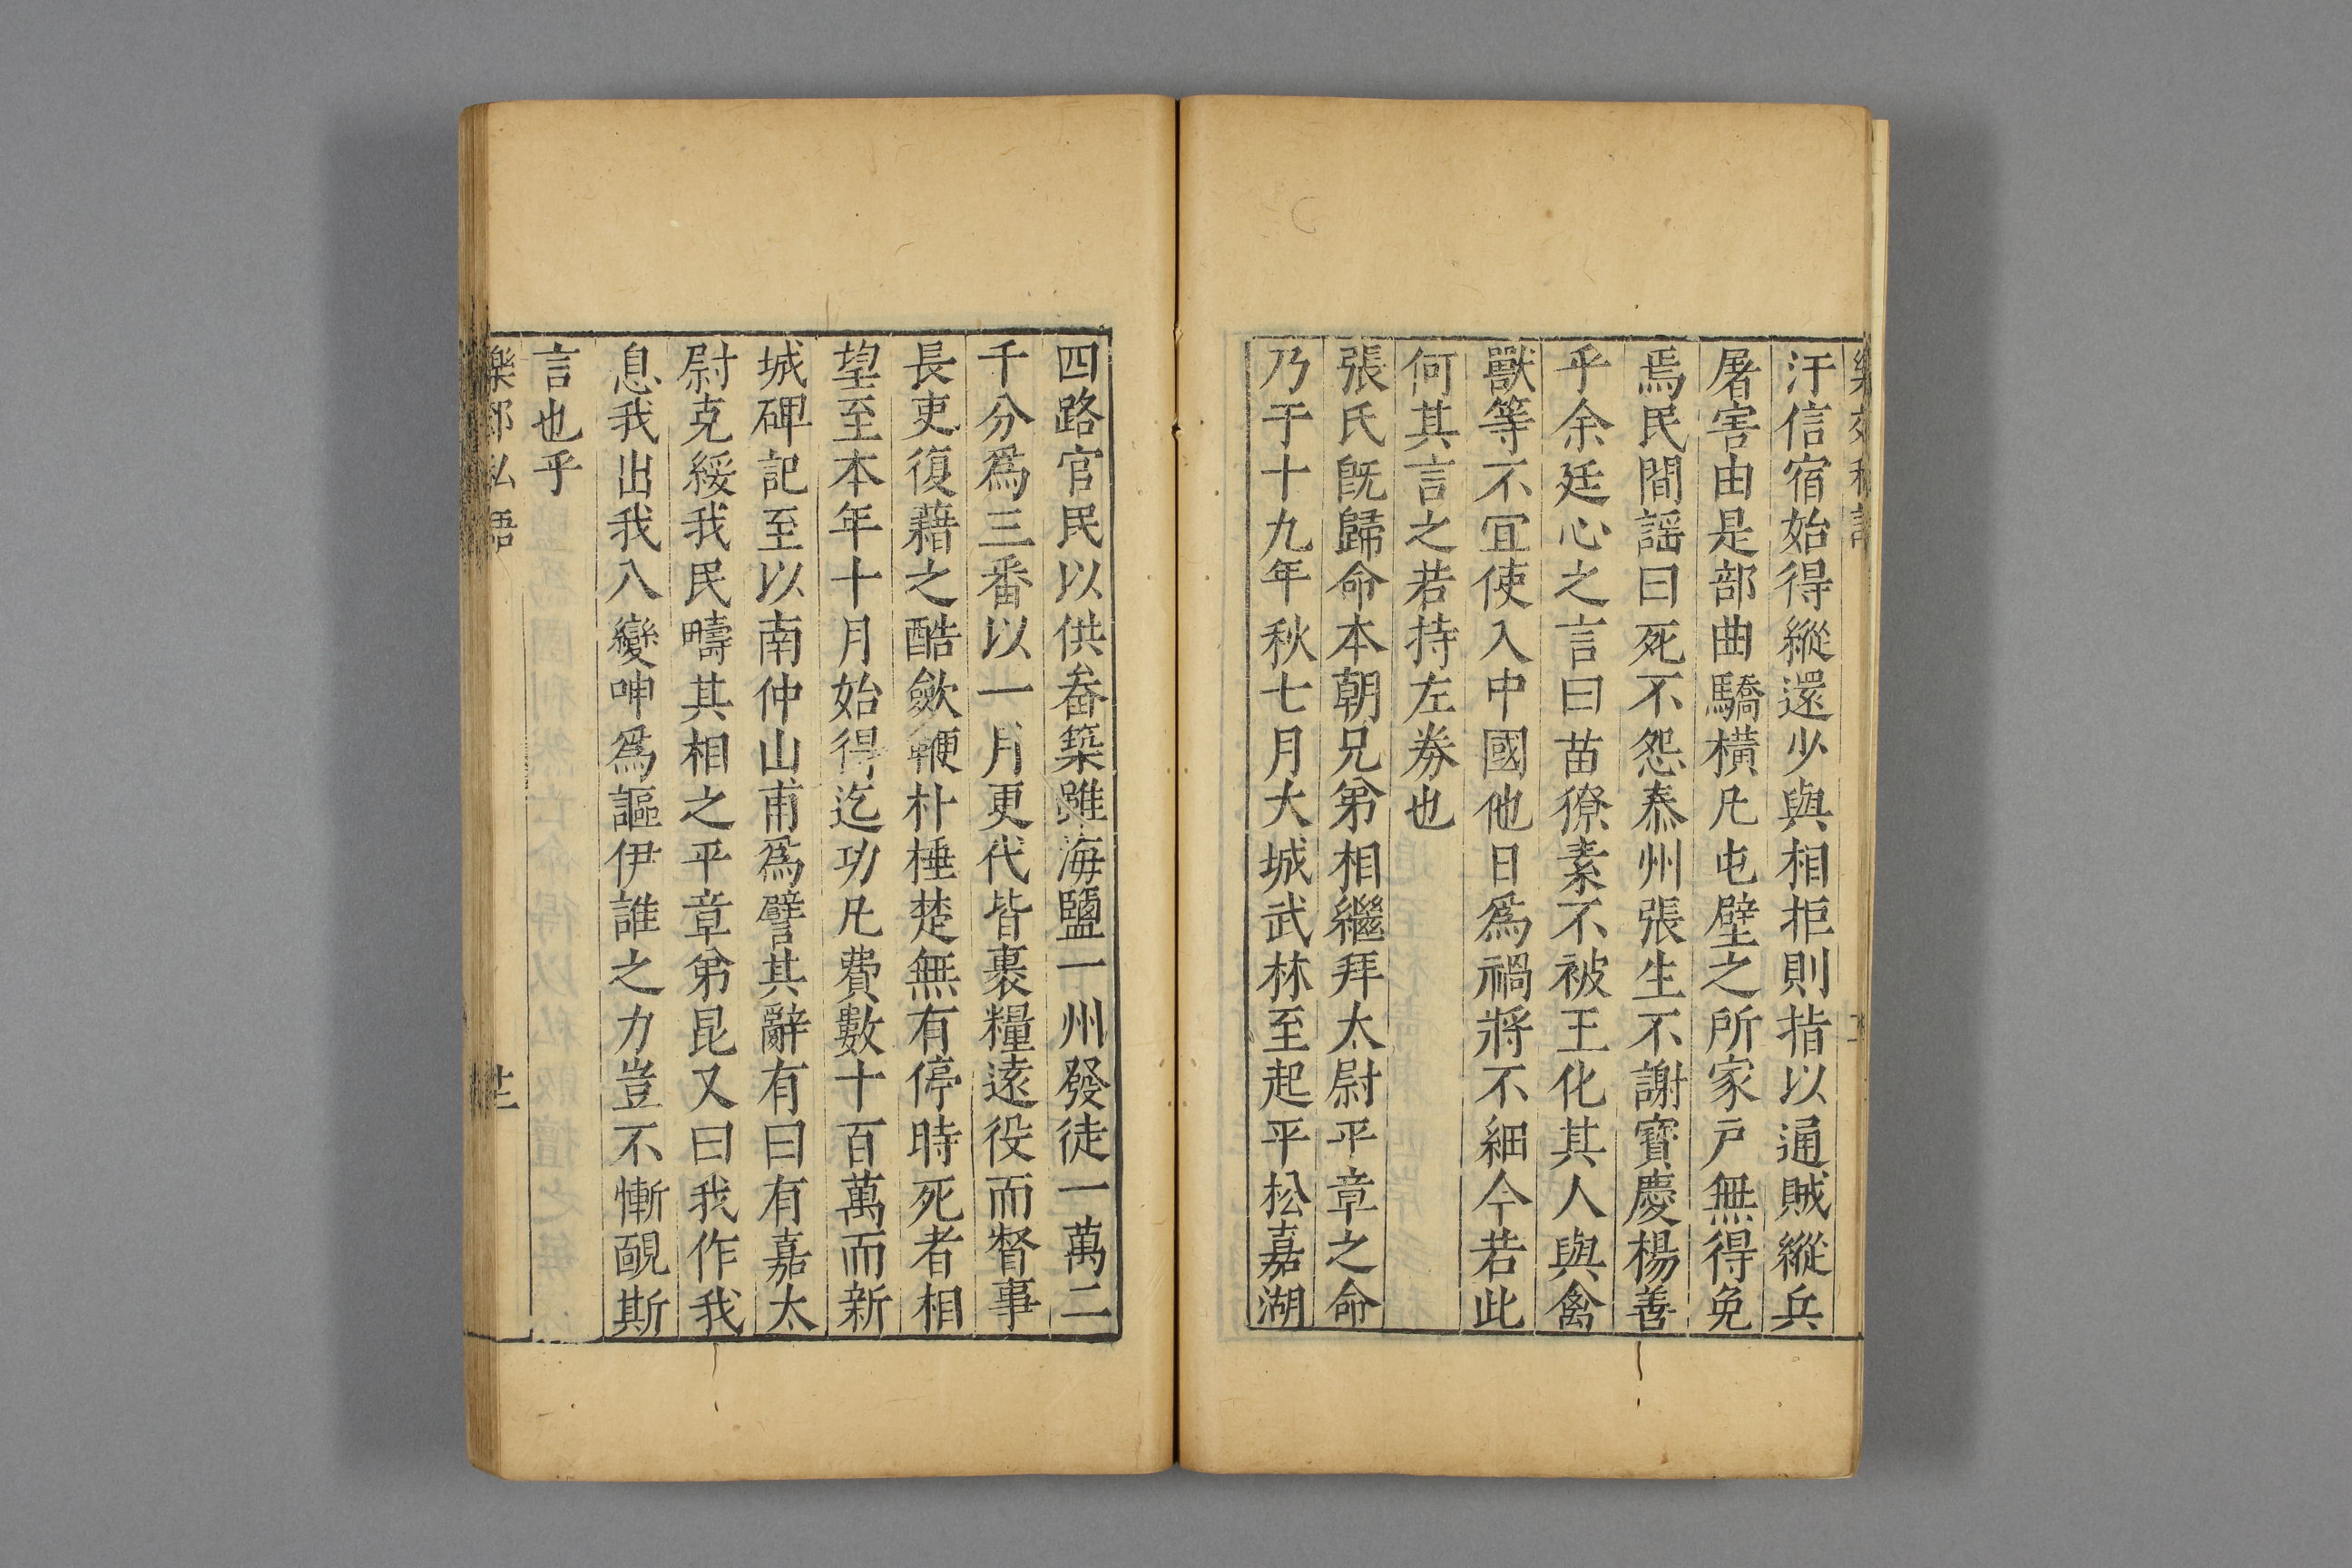 汙信宿始得縱還少與相拒則指以通賊縱兵
屠害由是部曲驕橫凡屯壁之所家戶無得免
焉民間謡曰死不怨泰州張生不謝寶慶楊善
乎余廷心之言曰苗獠素不被王化其人與禽
獸等不宜使入中國他日爲禍將不細今若此
何其言之若持左券也
張氏旣歸命本朝兄弟相繼拜太尉平章之命
乃于十九年秋七月大城武林至起平松嘉湖
四路官民以供畚築雖海鹽一州發徒一萬二
千分爲三番以一月更代皆裹糧遠役而督事
長吏復藉之酷歛鞭朴棰楚無有停時死者相
望至本年十月始得迄功凡費數十百萬而新
城碑記至以南仲山甫爲譬其辭有曰有嘉太
尉克綏我民疇其相之平章弟昆又曰我作我
息我出我入變呻爲謳伊誰之力豈不慚靦斯
言也乎
樂郊私語